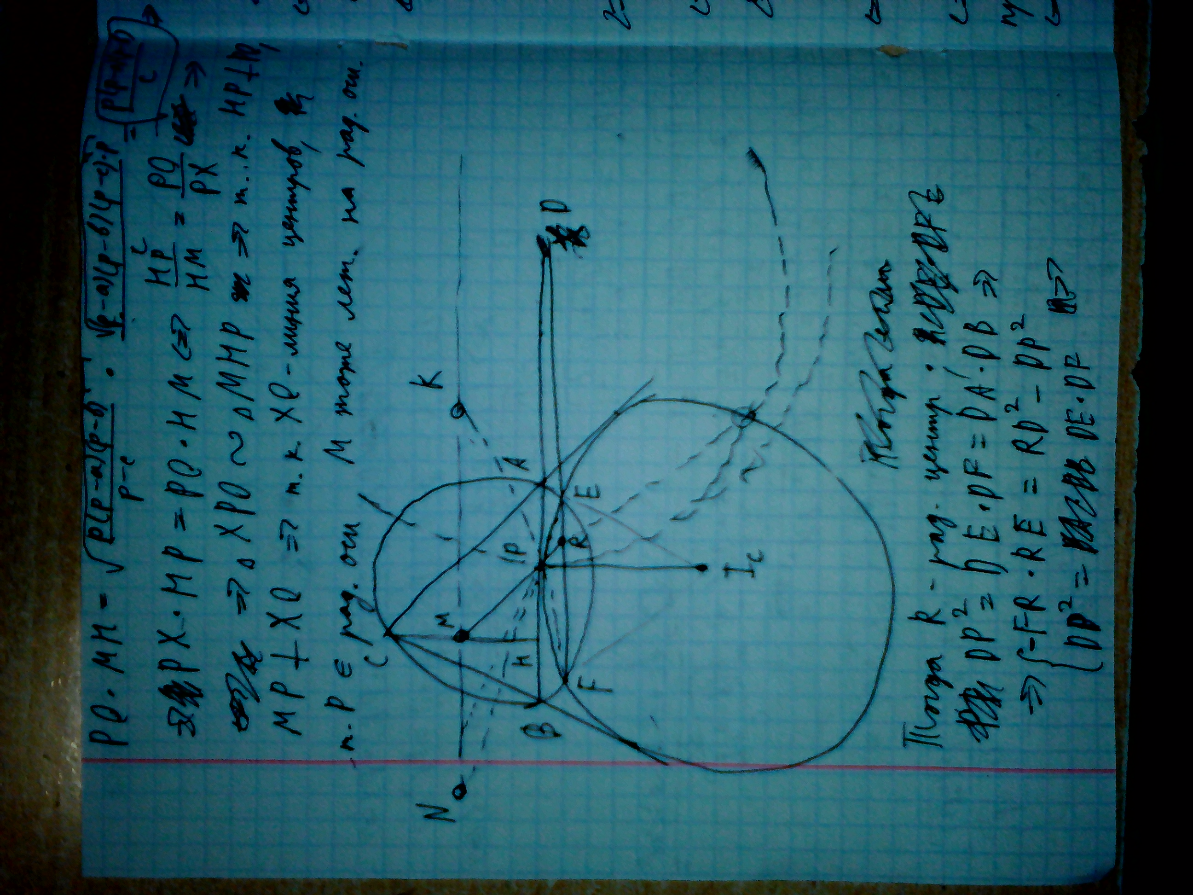 PQ · MH = √(p(p-a)(p-b))/(p-c) · √((p-a)(p-b)(p-c)·p)/c = (p(p-a)(p-b)/c) ⇒
PX · MP = PQ · HM ⇔ HP/HM = PQ/PX ⇒
⇒ △ XPQ ~ △ MHP ⇒ т. к. HP ⊥ PQ,
MP ⊥ XQ ⇒ т. к. XQ - линия центров,
т. P ∈ рад. оси M тоже леж. на рад. оси.
N
K
M
C
H
B
P
A
D
R
E
F
I_C
Тогда
Тогда R - рад. центр.
DP² = DE · DF = DA · DB ⇒
⇒ { -FR · RE = RD² - DP²
DP² = DE · DF ⇒